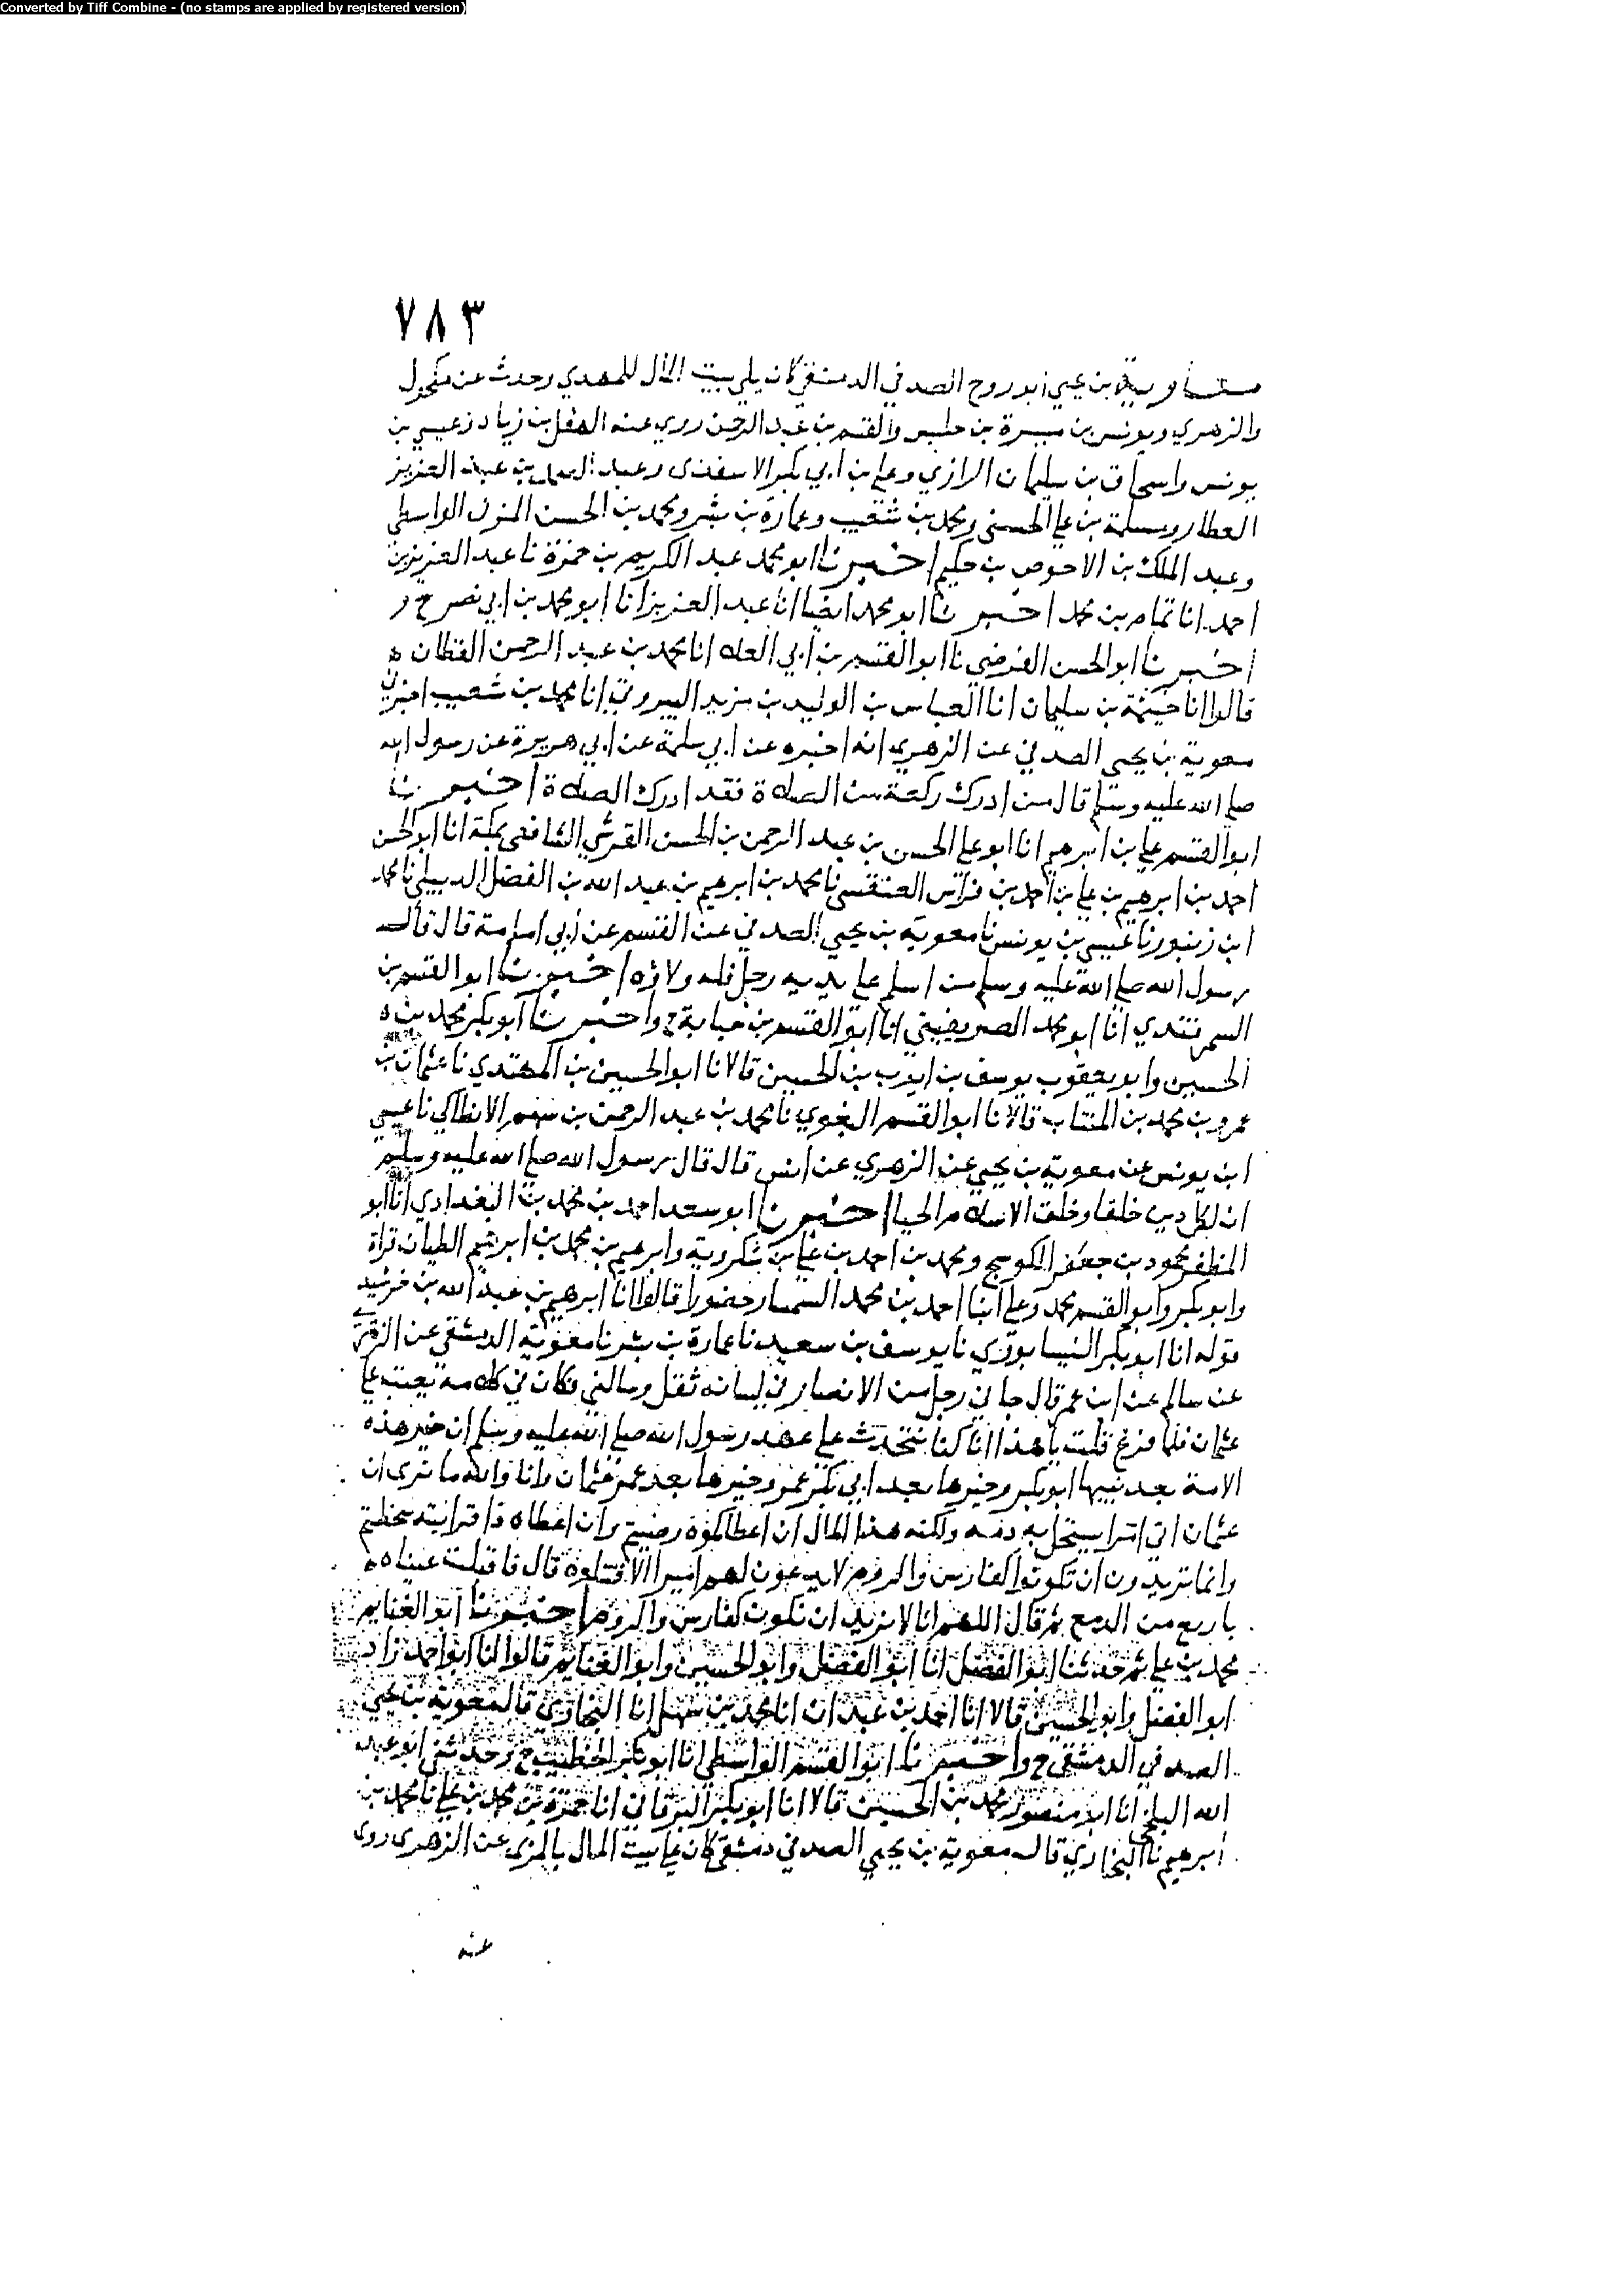 Converted by Tiff Combine - (no stamps are applied by registered version)
٧٨٣
معاوية بن يحيى ابو روح الصدفي الدمشقي كان يلي بيت المال للمهدي وحدث عن مكحول
والزهري ويونس بن ميسرة بن حلبس والقسم بن عبد الرحمن روى عنه الهقل بن زياد وعيسى بن
يونس واسحاق بن سليمان الرازي وعلي بن ابي بكر الاسفذى وعبد بن عبد العزيز
العطار ومسلمة بن علي الخشني ومحمد بن شعيب وعمارة بن بشر ومحمد بن الحسن المزني الواسطي
وعبد الملك بن الاحوص بن حكيم اخبرنا ابو محمد عبد الكريم بن حمزة نا عبد العزيز بن
احمد انا تمام بن محمد اخبرنا ابو محمد ايضا انا عبد العزيز انا ابو محمد بن ابي نصر ح و
اخبرنا ابو الحسن الفرضي نا ابو القسم بن ابي العلا انا محمد بن عبد الرحمن القطان ه
قالوا انا خيثمة بن سليمان انا العباس بن الوليد بن مزيد البيروتي انا محمد بن شعيب اخبرني
معوية بن يحيى الصدفي عن الزهري انه اخبره عن ابي سلمة عن ابي هريرة عن رسول الله
صلى الله عليه وسلم قال من ادرك ركعة من الصلاة فقد ادرك الصلاة اخبرنا
ابو القسم علي بن ابرهيم انا ابو علي الحسن بن عبد الرحمن بن الحسن القرشي الشافعي بمكة انا ابو الحسن
احمد بن ابرهيم بن علي بن احمد بن فراس العبقسي نا محمد بن ابرهيم بن عبد الله بن الفضل الديبلي نا محمد
ابن زنبور نا عيسى بن يونس نا معوية بن يحيى الصدفي عن القسم عن ابي امامة قال قال
رسول الله صلى الله عليه وسلم من اسلم على يديه رجل فله ولاؤه اخبرنا ابو القسم بن
السمرقندي انا ابو محمد الصريفيني انا ابو القسم بن حبابة ح واخبرنا ابو بكر محمد بن ه
الحسين وابو يعقوب يوسف بن ايوب بن الحسين قالا نا ابو الحسين بن المهتدي نا عثمان بن
عمرو بن محمد بن المنتاب قالا نا ابو القسم البغوي نا محمد بن عبد الرحمن بن سهم الانطاكي نا عيسى
ابن يونس عن معوية بن يحيى عن الزهري عن انس قال قال رسول الله صلى الله عليه وسلم
ان لكل دين خلقا وخلق الاسلام الحيا اخبرنا ابو سعد احمد بن محمد بن البغدادي انا ابو
المظفر محمود بن جعفر الكوسج ومحمد بن احمد بن علي بن شكرويه وابرهيم بن محمد بن ابرهيم الطيان قراة
وابو بكر وابو القسم محمد وعلي ابنا احمد بن محمد السمسار حضورا قالوا انا ابرهيم بن عبد الله بن خرشيد
قوله انا ابو بكر النيسابوري نا يوسف بن سعيد نا عمارة بن بشر نا معوية الدمشقي عن الزهري
عن سالم عن ابن عمر قال جاني رجل من الانصار في لسانه ثقل وسالني فكان في كلامه تعتب على
عثمان فلما فرغ قلت يا هذا انا كنا نتحدث على عهد رسول الله صلى الله عليه وسلم ان خير هذه
الامة بعد نبيها ابو بكر وخيرها بعد ابي بكر عمر وخيرها بعد عمر عثمان وانا والله ما نرى ان
عثمان اتى امرا يستحل به دمه ولكنه هذا المال ان اعطاكموه رضيتم وان اعطاه ذا قرابته سخطتم
وانما تريدون ان تكونوا كفارس والروم لا يدعون لهم اميرا الا قتلوه قال فاقبلت عيناه ه
باربع من الدمع ثم قال اللهم انا لا نريد ان نكون كفارس والروم اخبرنا ابو الغنايم
محمد بن علي ثم حدثنا ابو الفضل انا ابو الفضل وابو الحسين وابو الغنايم قالوا انا ابو احمد زاد
ابو الفضل وابو الحسين قالا انا احمد بن عبدان انا محمد بن سهل انا البخاري قال معوية بن يحيى
الصدفي الدمشقي ح واخبرنا ابو القسم الواسطي انا ابو بكر الخطيب ح وحدثني ابو عبد
الله البلخي انا ابو منصور محمد بن الحسين قالا انا ابو بكر البرقاني انا حمزة بن محمد بن علي نا محمد بن
ابرهيم نا البخاري قال معوية بن يحيى الصدفي دمشقي كان على بيت المال بالري عن الزهري روى
عنه